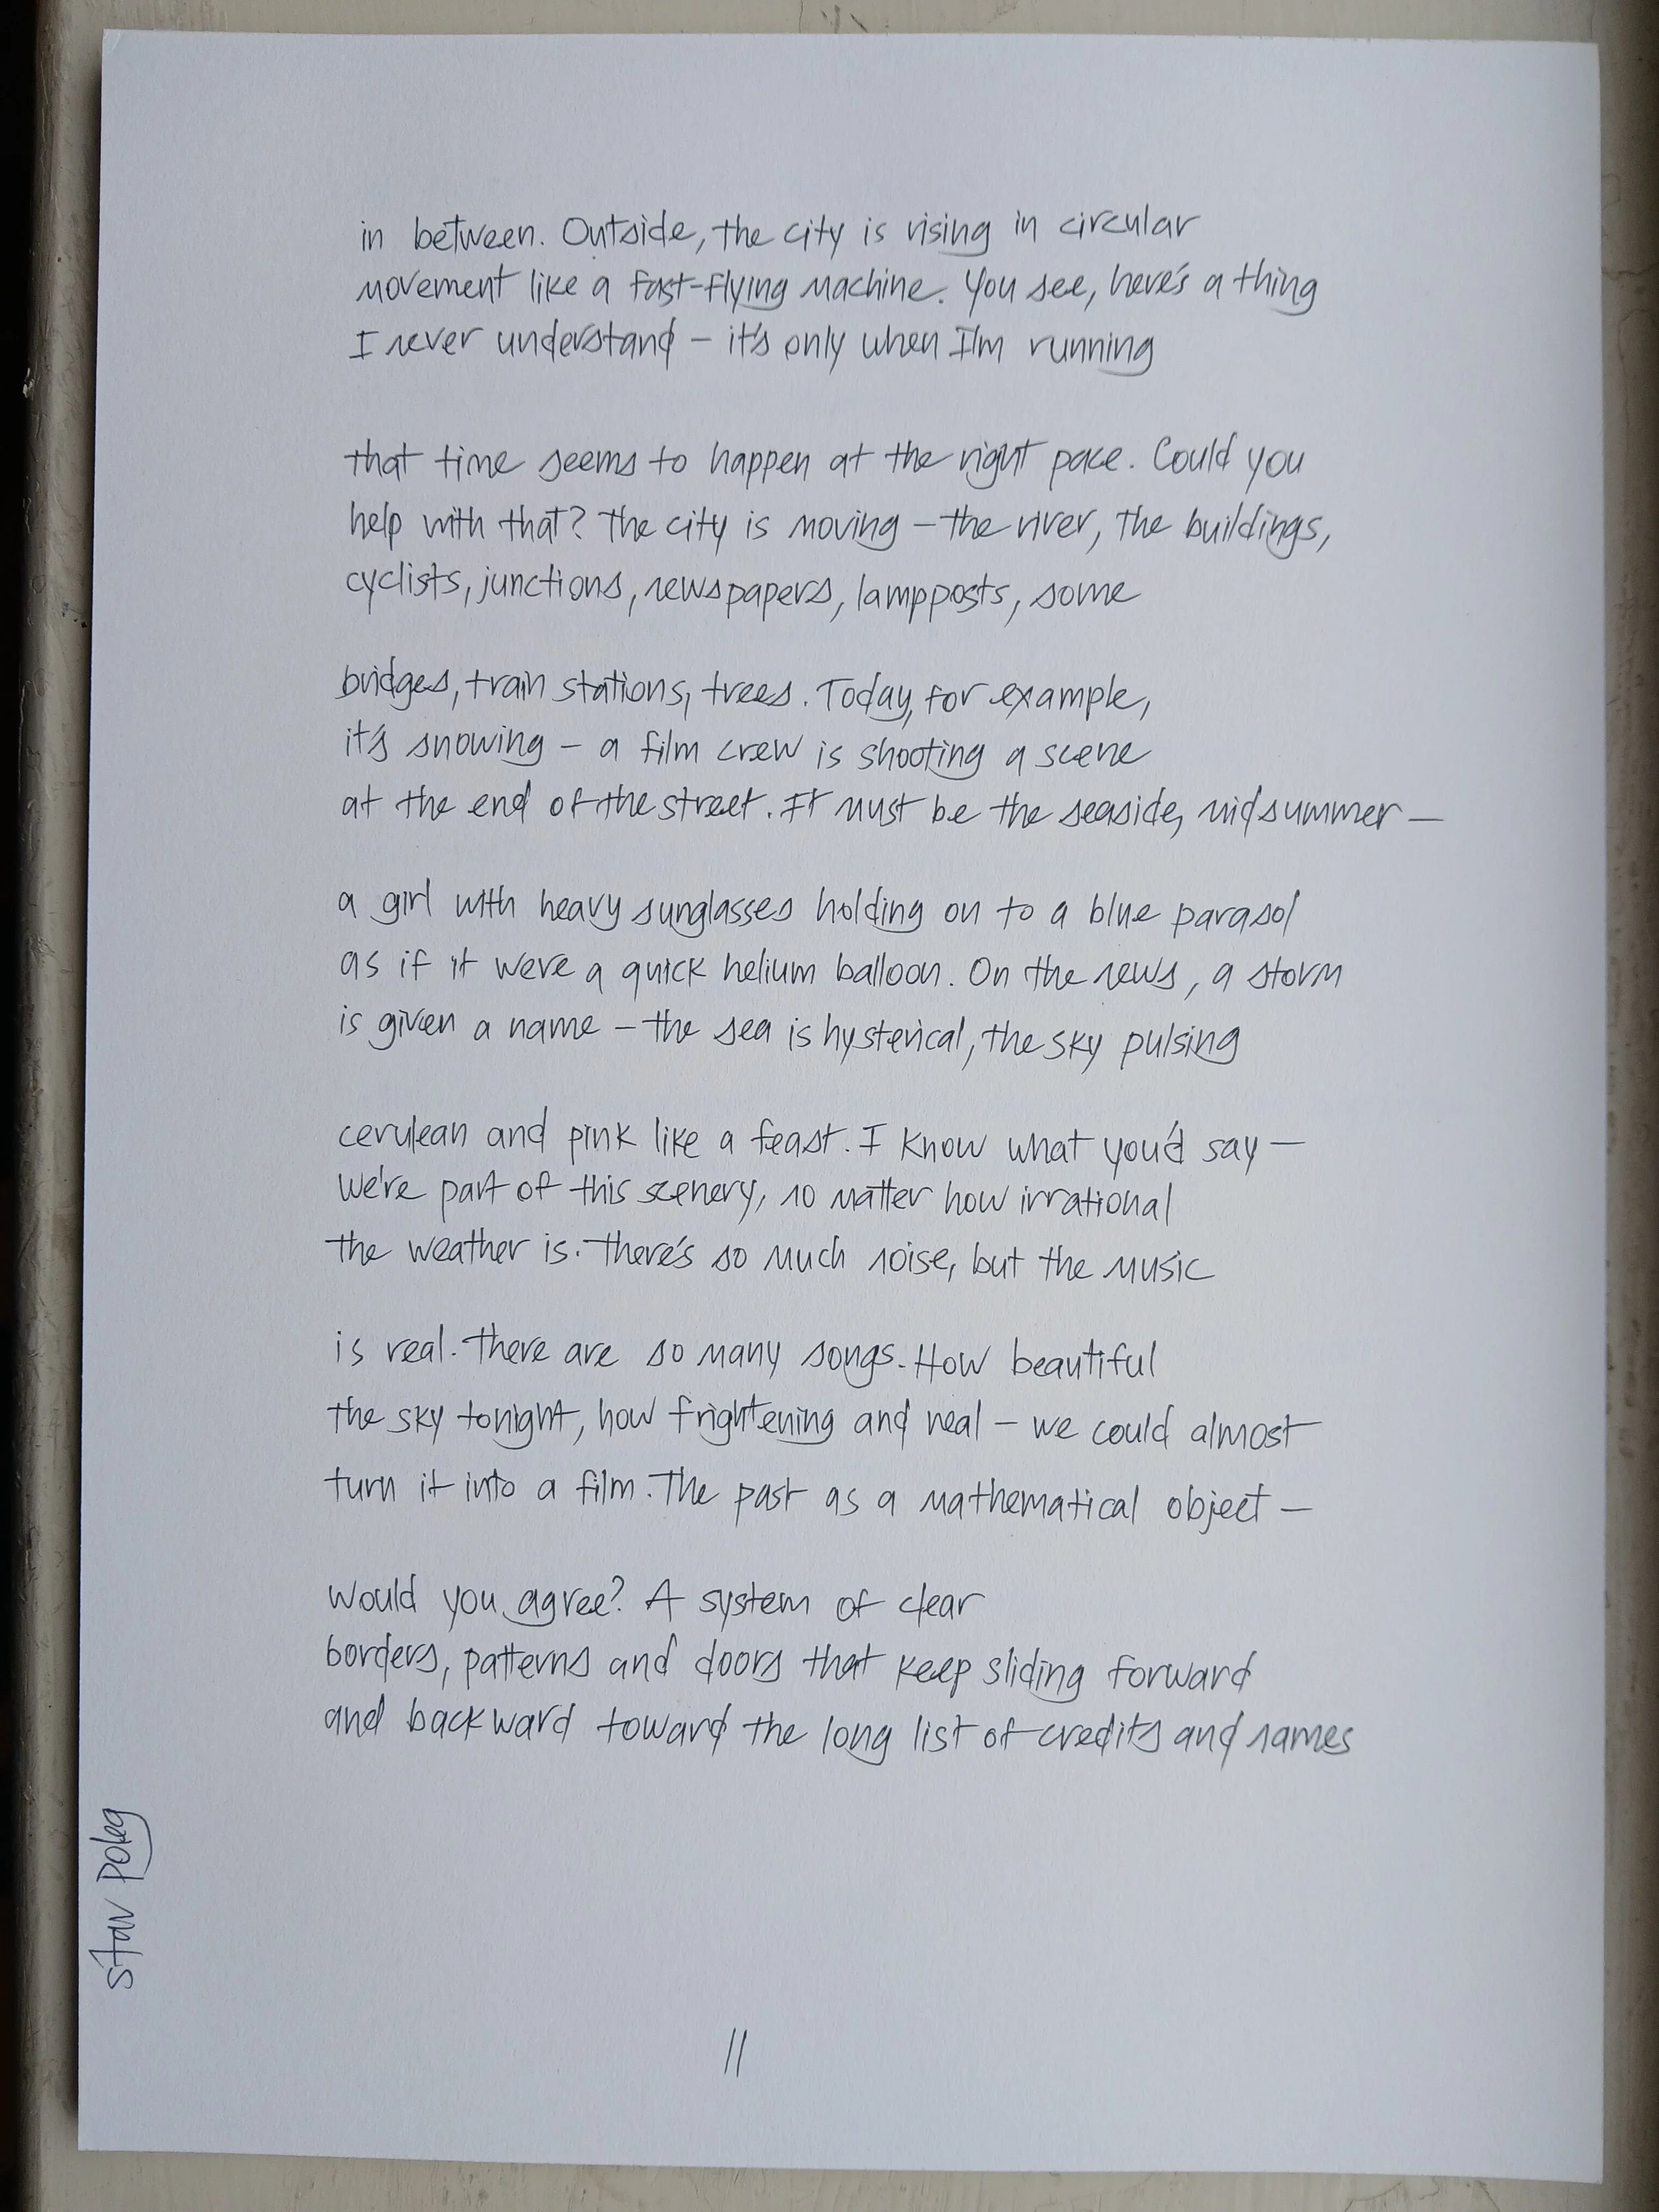 in between. Outside, the city is rising in circular
movement like a fast-flying machine. You see, here's a thing
I never understand – it's only when I'm running
that time seems to happen at the right pace. Could you
help with that? The city is moving – the river, the buildings,
cyclists, junctions, newspapers, lampposts, some
bridges, train stations, trees. Today, for example,
it's snowing – a film crew is shooting a scene
at the end of the street. It must be the seaside, midsummer –
a girl with heavy sunglasses holding on to a blue parasol
as if it were a quick helium balloon. On the news, a storm
is given a name – the sea is hysterical, the sky pulsing
cerulean and pink like a feast. I know what you'd say –
we're part of this scenery, no matter how irrational
the weather is. There's so much noise, but the music
is real. There are so many songs. How beautiful
the sky tonight, how frightening and real – we could almost
turn it into a film. The past as a mathematical object –
would you agree? A system of clear
borders, patterns and doors that keep sliding forward
and backward toward the long list of credits and names
Stav Poleg
11